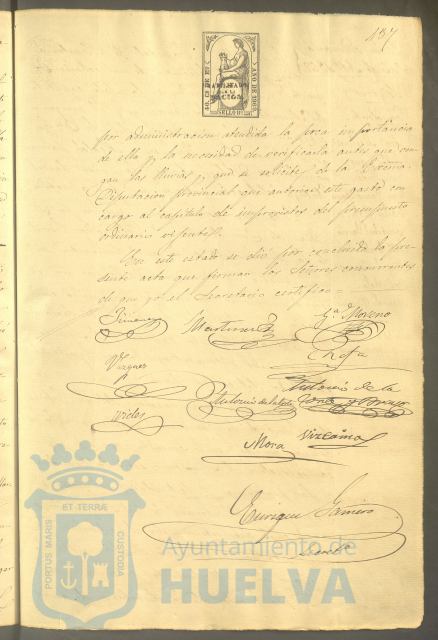 187
HABILITADO
POR LA
NACION
AÑO DE 1869
SELLO
por administracion atendida la poca importancia
de ella y la necesidad de verificarla antes que ven-
gan las lluvias y que se solicite de la Exma.
Diputacion provincial que autorice este gasto con
cargo al capitulo de imprevistos del presupuesto
ordinario vigente.
En este estado se dió por concluida la pre-
sente acta que firman los Señores concurrentes
de que yo el Secretario certifico=
Jimenez Martinez Gª. Moreno
Vazquez
Antonio de la
Vides Antonio de la
Mora Vizcaino
Enrique
ET TERRÆ
PORTUS MARIS
CUSTODIA
Ayuntamiento de
HUELVA